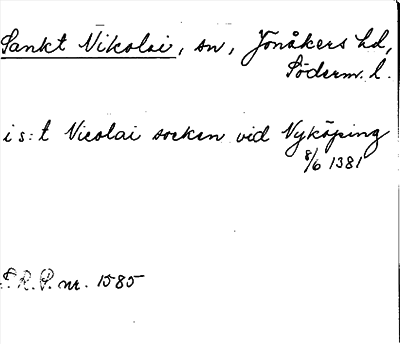 Sankt Nikolai, sn, Jönåkers hd,
Söderm. l.
i s:t Nicolai socken vid Nyköping
8/6 1381
S.R.P. nr. 1585